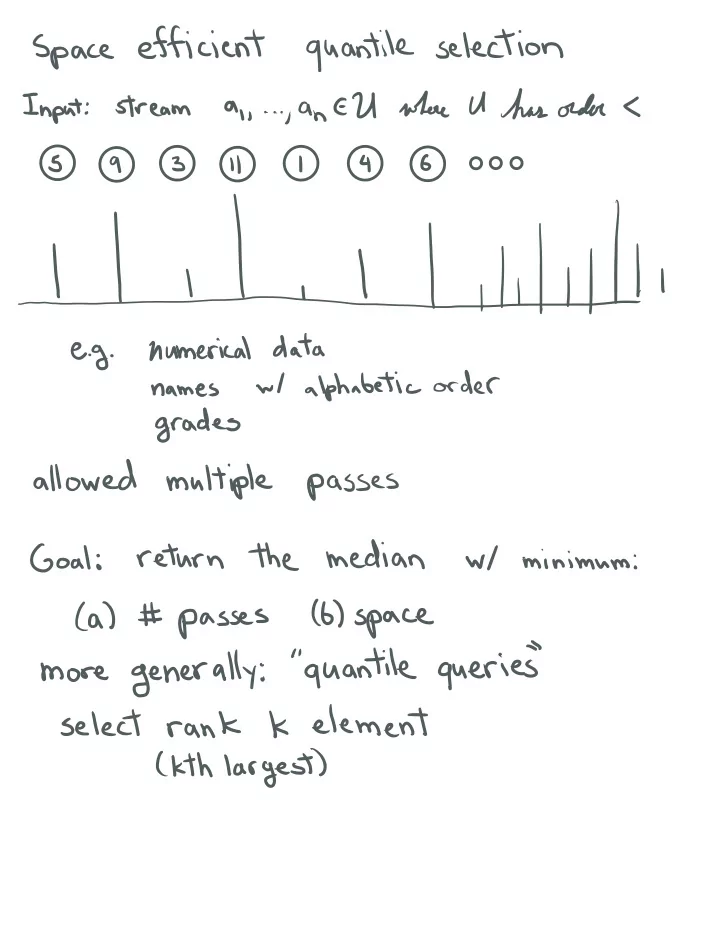 Space efficient quantile selection
Input: stream a₁, ..., aₙ ∈ U where U has order <
5 9 3 11 1 4 6 ooo
e.g. numerical data
names w/ alphabetic order
grades
allowed multiple passes
Goal: return the median w/ minimum:
(a) # passes (b) space
more generally: "quantile queries"
select rank k element
(kth largest)